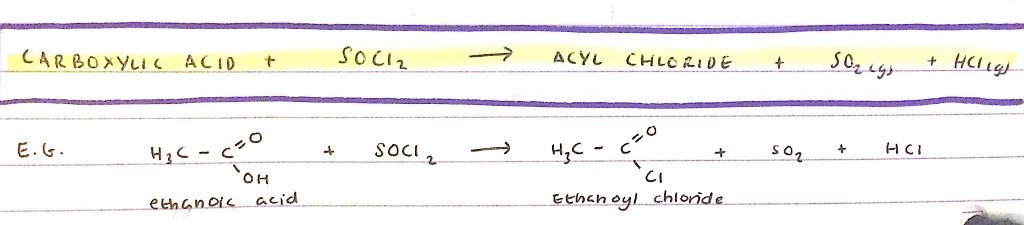 CARBOXYLIC ACID + SOCl2 → ACYL CHLORIDE + SO2(g) + HCl(g)
E.G. H3C - C=O + SOCl2 → H3C - C=O + SO2 + HCl
OH Cl
ethanoic acid Ethanoyl chloride